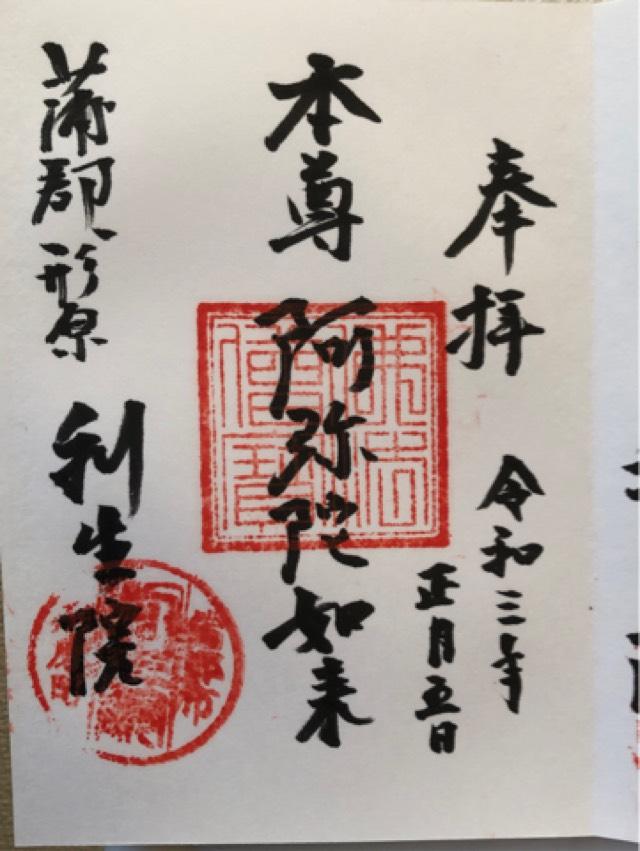 奉拝
令和三年
正月五日
本尊 阿弥陀如来
佛法僧寳
蒲郡形原
利生院